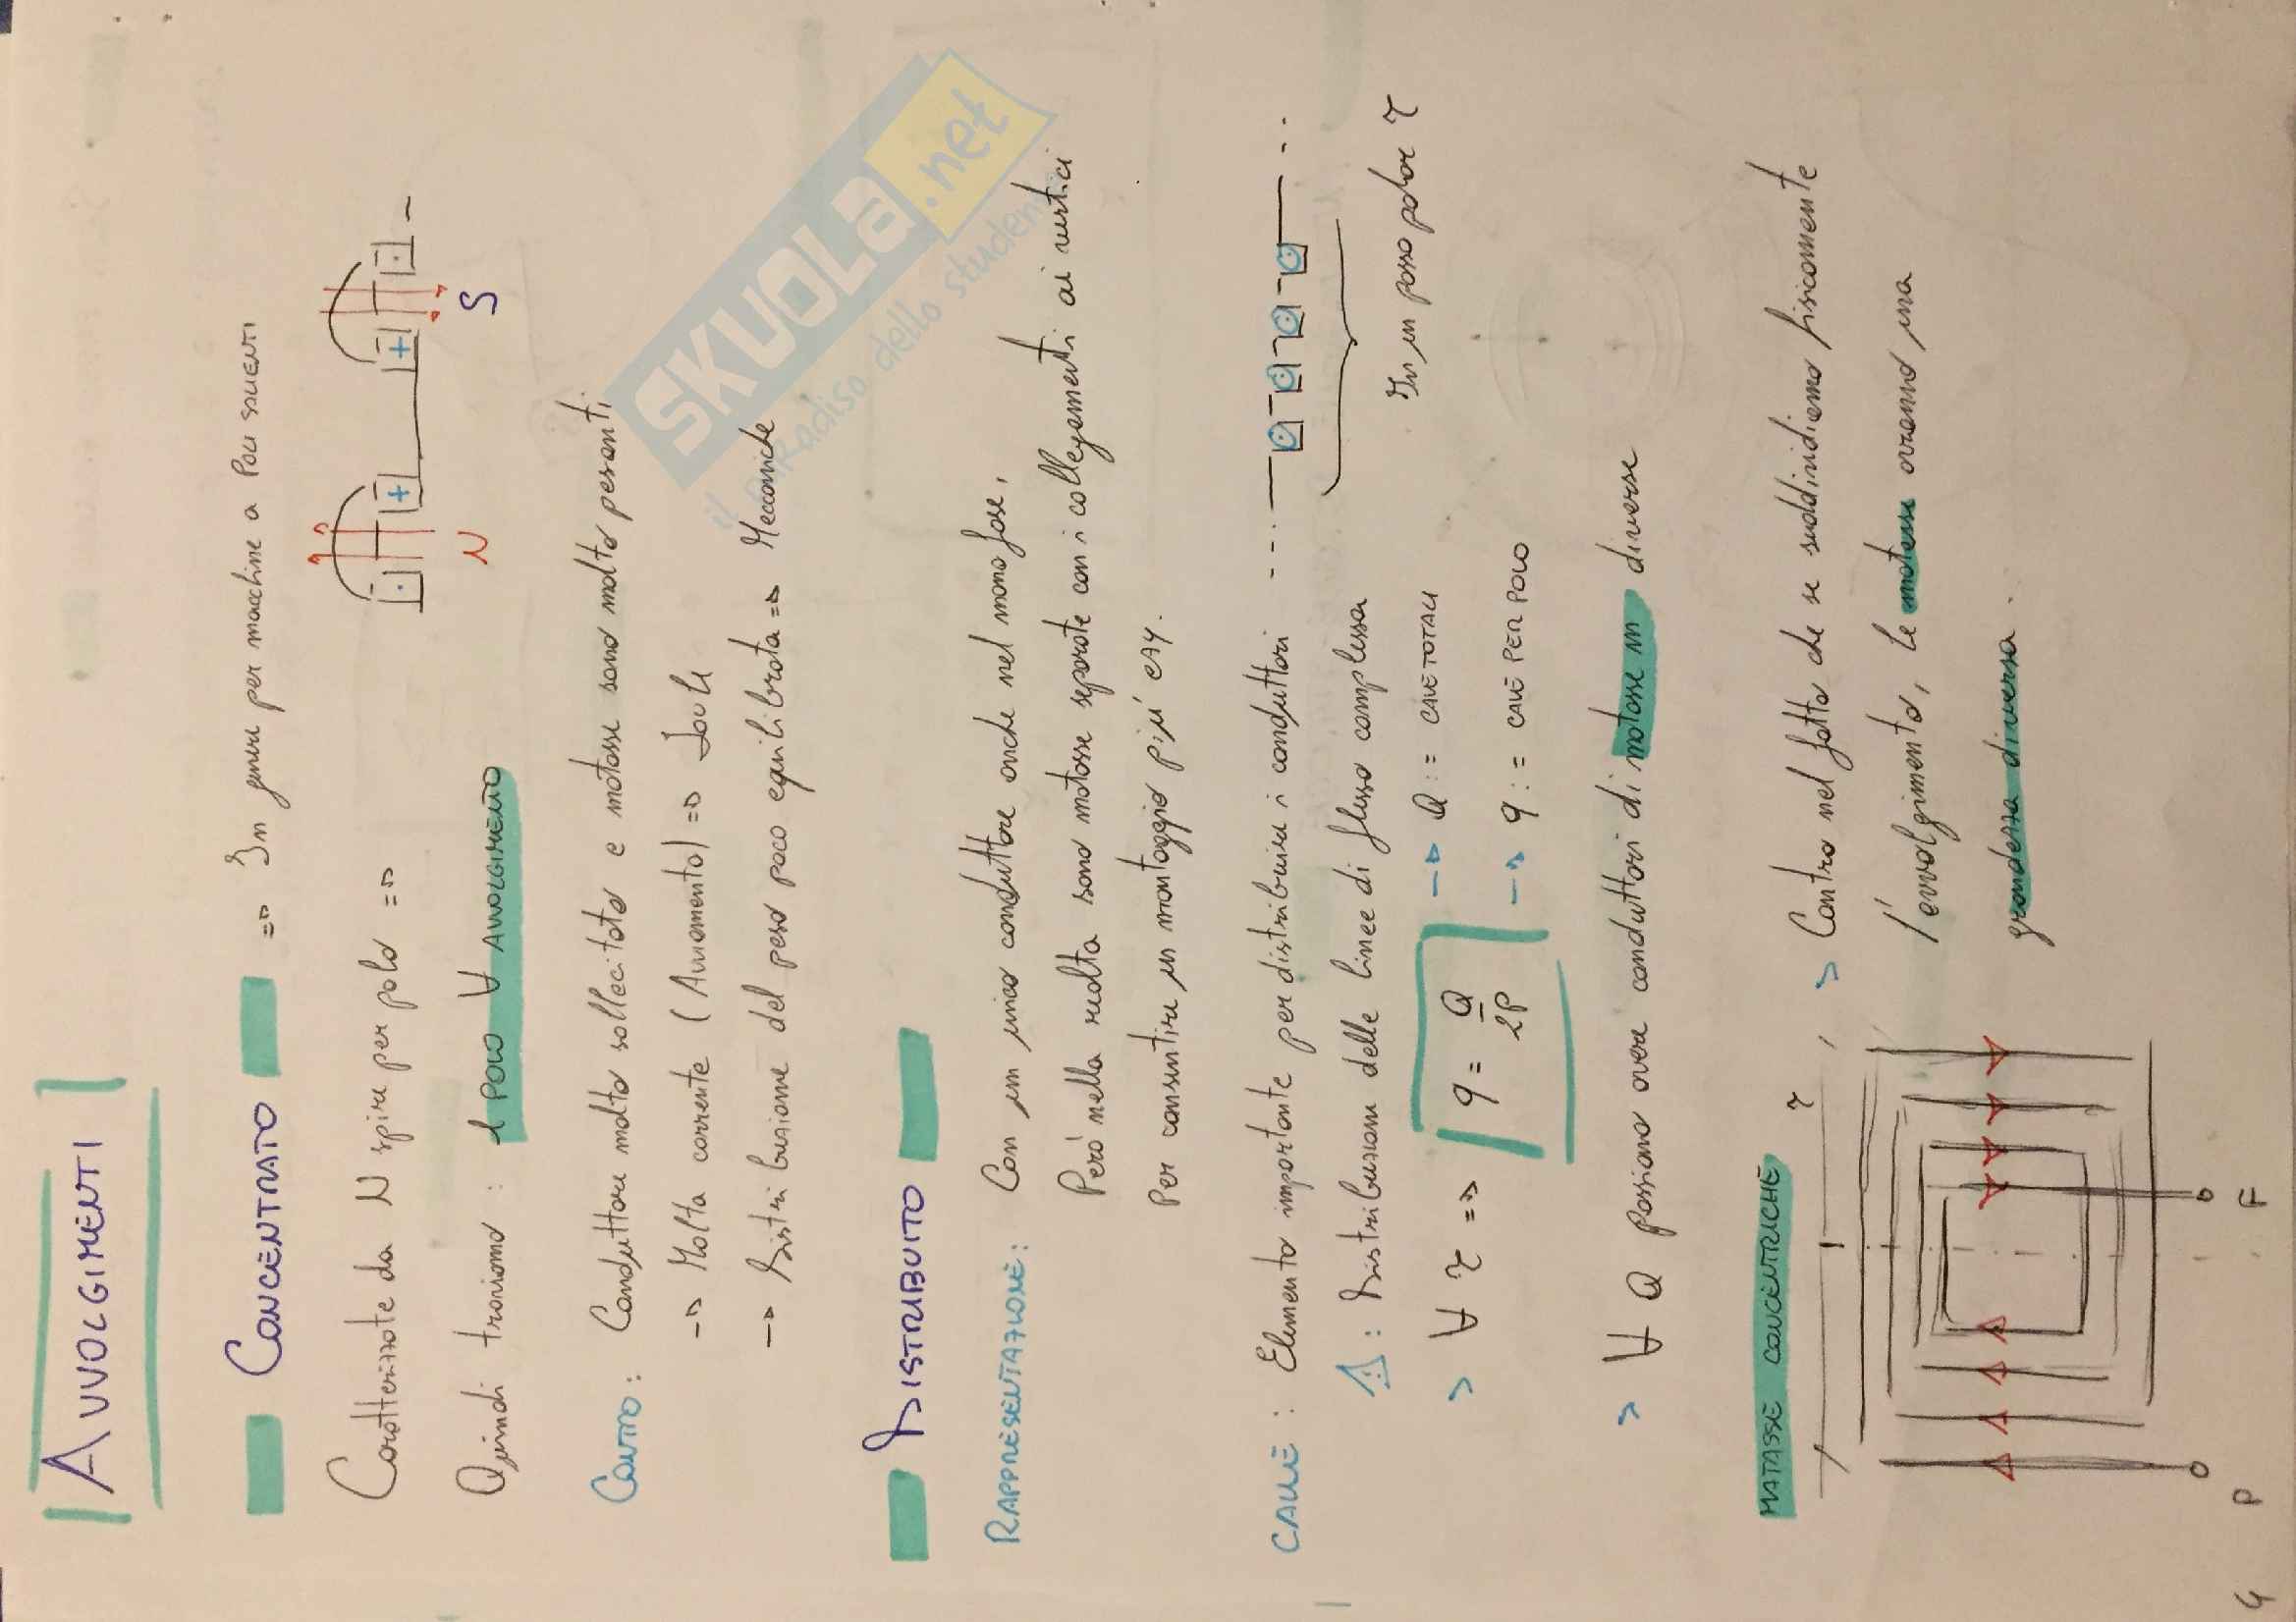 AVVOLGIMENTI
CONCENTRATO => In genere per macchine a POLI SALIENTI
Caratterizzate da N spire per polo =>
N S
Quindi troviamo : 1 POLO ∀ AVVOLGIMENTO
CONTRO : Conduttore molto sollecitato e matasse sono molto pesanti
-> Molta corrente (Avviamento) => Joule
-> Distribuzione del peso poco equilibrata => Meccaniche
DISTRIBUITO
RAPPRESENTAZIONE : Con un unico conduttore anche nel mono fase,
Però nella realtà sono matasse separate con i collegamenti ai vertici
Per consentire un montaggio più easy.
CAVE : Elemento importante per distribuire i conduttori
⚠ : Distribuzione delle linee di flusso complessa
In un passo polare τ
> ∀ τ => q = Q/2P -> Q := CAVE TOTALI
-> q := CAVE PER POLO
> ∀ Q possiamo avere conduttori di matasse in diverse
MATASSE CONCENTRICHE
τ
> Contro nel fatto che se suddividiamo fisicamente
l'avvolgimento, le matasse avranno una
grandezza diversa.
P F
4
SKUOLA.net
il paradiso dello studente